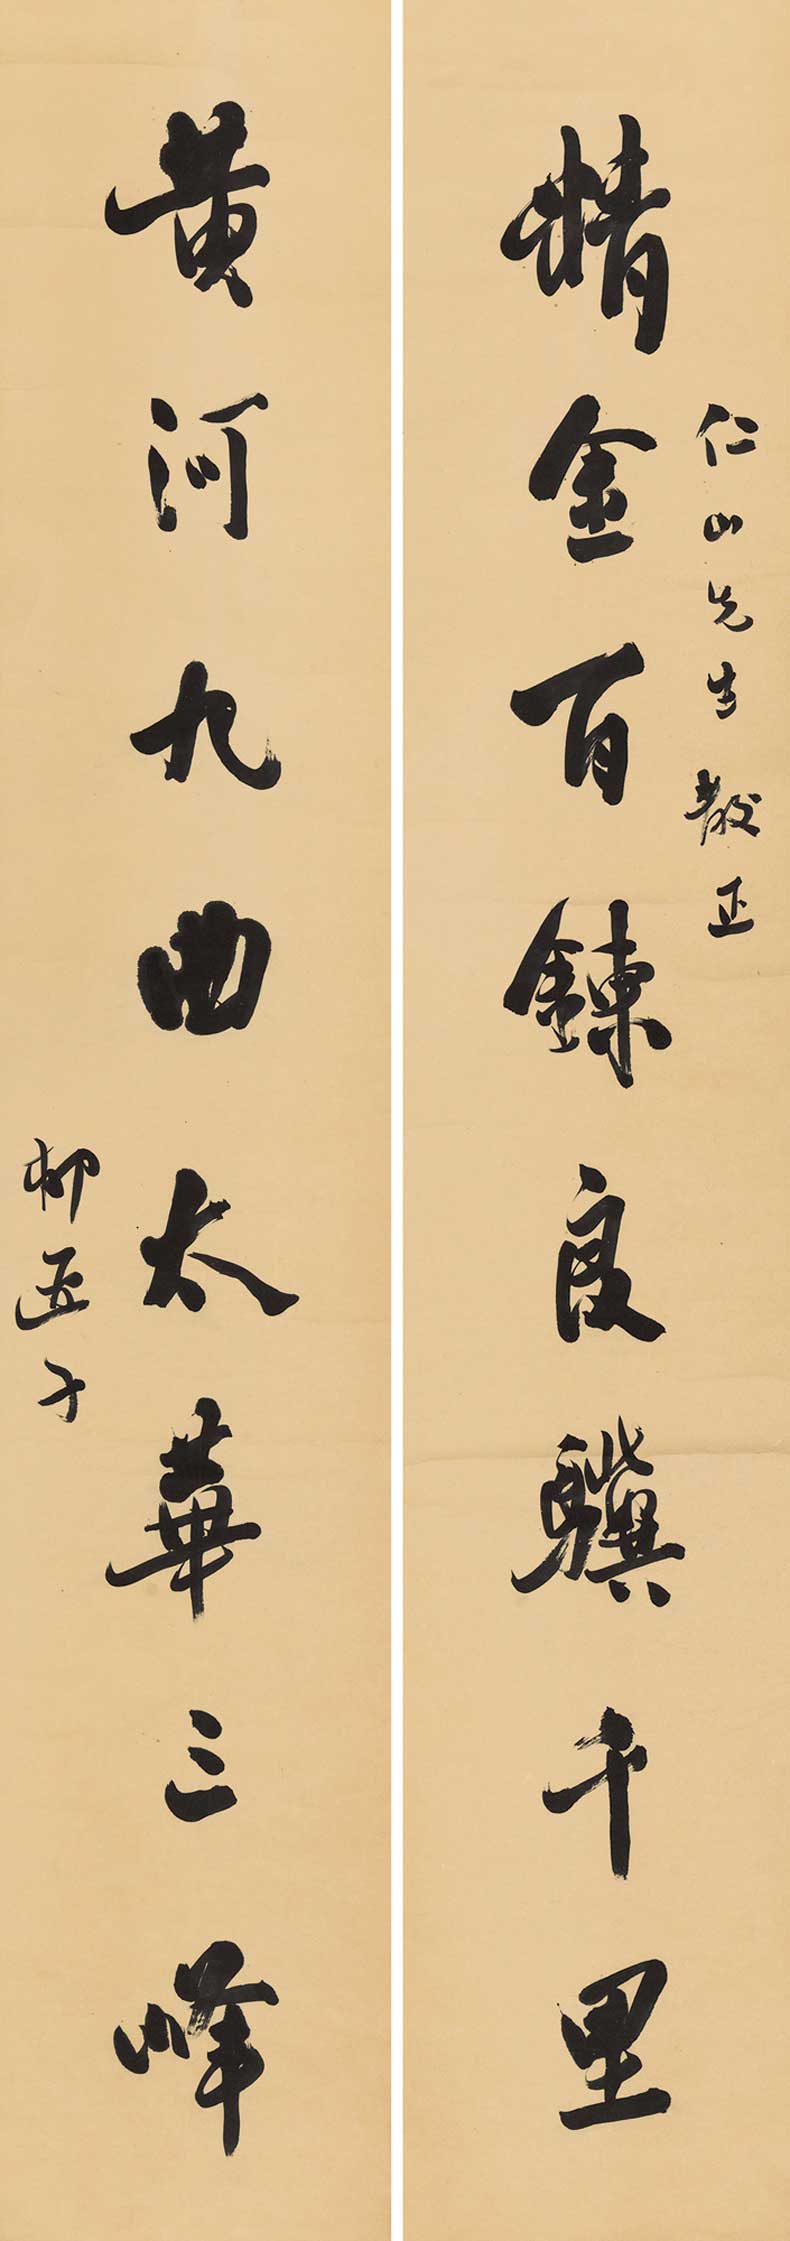 精金百鍊良驥千里
仁山先生教正
黃河九曲太華三峰
柳